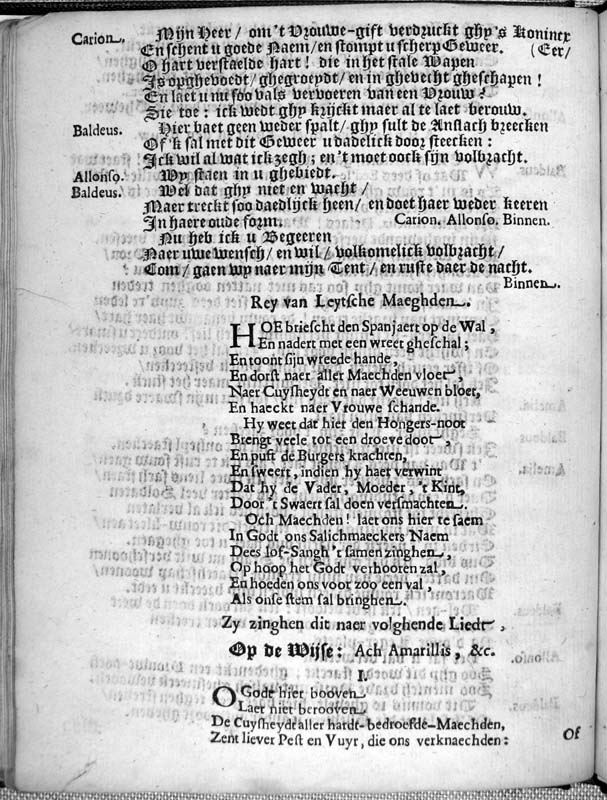 Carion. Mijn Heer / om 't Vrouwe-gift verdruckt ghy 's Koninex
En schent u goede Naem / en stompt u scherp Geweer. (Eer /
O hart verstaelde hart ! die in het stale Wapen
Is opghevoedt / ghegroeydt / en in ghevecht gheschapen !
En laet u nu soo vals vervoeren van een Vrouw ?
Sie toe : ick wedt ghy krijckt maer al te laet berouw.
Baldeus. Hier baet geen weder spalt / ghy sult de Anslach breecken
Of 'k sal met dit Geweer u dadelick door steecken :
Ick wil al wat ick zegh ; en 't moet oock sijn volbracht.
Allonso. Wy staen in u ghebiedt.
Baldeus. Wel dat ghy niet en wacht /
Maer treckt soo daedlijck heen / en doet haer weder keeren
In haere oude form. Carion, Allonso, Binnen.
Nu heb ick u Begeeren
Naer uwe wensch / en wil / volkomelick volbracht /
Com / gaen wy naer mijn Tent / en ruste daer de nacht.
Binnen.
Rey van Leytsche Maeghden.
HOE briescht den Spanjaert op de Wal,
En nadert met een wreet gheschal ;
En toont sijn wreede hande,
En dorst naer aller Maechden vloet,
Naer Cuysheydt en naer Weeuwen bloet,
En haeckt naer Vrouwe schande.
Hy weet dat hier den Hongers-noot
Brengt veele tot een droeve doot
En pust de Burgers krachten,
En sweert, indien hy haer verwint
Dat hy de Vader, Moeder, 't Kint,
Door 't Swaert sal doen versmachten.
Och Maechden ! laet ons hier te saem
In Godt ons Salichmaeckers Naem
Dees lof-Sangh 't samen zinghen,
Op hoop het Godt verhooren zal,
En hoeden ons voor zoo een val,
Als onse stem sal bringhen.
Zy zinghen dit naer volghende Liedt,
Op de Wijse : Ach Amarillis, &c.
I.
O Godt hier booven
Laet niet berooven
De Cuysheydt aller hardt-bedroefde-Maechden,
Zent liever Pest en Vuyr, die ons verknaechden :
Of